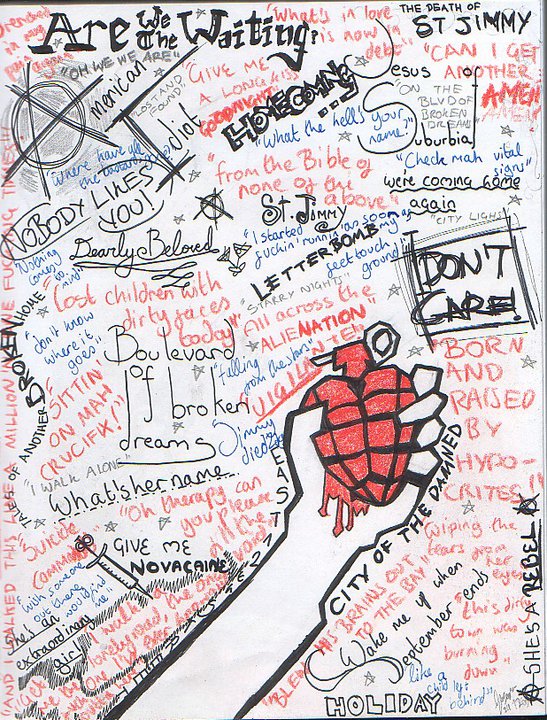 Are We The Waiting?
THE DEATH OF
ST JIMMY
"What's in love
is now in
debt"
"OH WE WE ARE"
American Idiot
"LOST AND
FOUND"
"GIVE ME
A LONG KISS
GOODNIGHT"
HOMECOMING
"CAN I GET
ANOTHER
AMEN"
Jesus of Suburbia
"ON THE
BLVD OF
BROKEN
DREAMS
"What the hell's your
name?"
"Where have all
the bastards gone
NOBODY LIKES
YOU!
"from the Bible of
none of the
above"
"Check mah vital
signs"
we're coming home
again
"CITY LIGHTS"
St. Jimmy
Dearly Beloved
"I started
fuckin' runnin' as soon as my
feet touch
ground"
LETTERBOMB
"Nothing
comes to
mind"
I DON'T
CARE!
"Lost children with
dirty faces
today"
"STARRY NIGHTS"
"All across the
ALIENATION"
VIGILANTE
"falling
from the stars"
TALES OF ANOTHER BROKEN HOME
"don't know
where it
goes"
Boulevard
of broken
dreams
"SITTIN
ON MAH
CRUCIFIX!"
"BORN
AND
RAISED
BY
HYPO-
CRITES!!"
Jimmy
died
"I WALK ALONE"
Whatshername
EAST 12TH ST
"Oh therapy can
you please
fill the
void"
"Suicide
Commando"
GIVE ME
NOVACAINE
"with someone
out there
would find
me"
She's an
extraordinary
girl
"I walk a
lonely road, the only
one
CITY OF THE DAMNED
"BLEW HIS BRAINS OUT
TO THE BAY"
"Wiping the
tears from
her
eyes"
Wake me up when
September ends
"this dirty
town was
burning
down"
SHE'S A REBEL
"like a
child left
behind"
HOLIDAY
"AND I WALKED THIS LINE A MILLION AND ONE FUCKING TIMES!!!